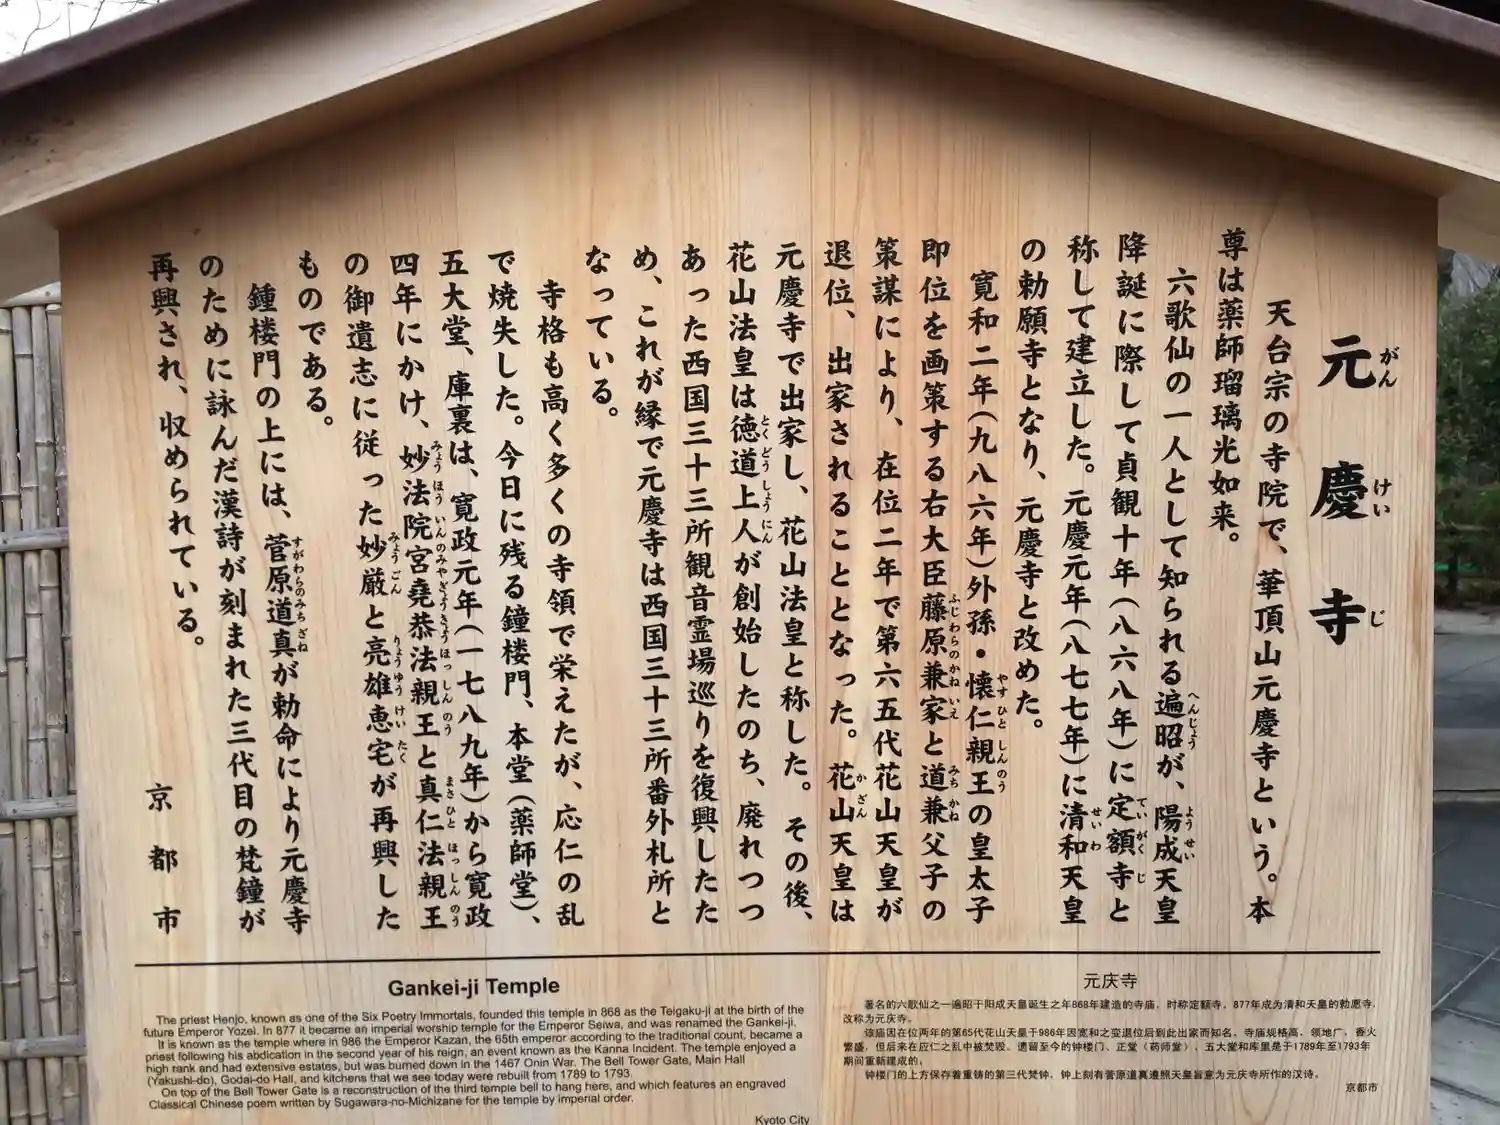 元慶寺
がんけいじ
天台宗の寺院で、華頂山元慶寺という。本
尊は薬師瑠璃光如来。
六歌仙の一人として知られる遍昭が、陽成天皇
へんじょう ようせい
降誕に際して貞観十年(八六八年)に定額寺と
ていがくじ
称して建立した。元慶元年(八七七年)に清和天皇
せいわ
の勅願寺となり、元慶寺と改めた。
寛和二年(九八六年)外孫・懐仁親王の皇太子
やすひとしんのう
即位を画策する右大臣藤原兼家と道兼父子の
ふじわらのかねいえ みちかね
策謀により、在位二年で第六五代花山天皇が
退位、出家されることとなった。花山天皇は
かざん
元慶寺で出家し、花山法皇と称した。その後、
花山法皇は徳道上人が創始したのち、廃れつつ
とくどうしょうにん
あった西国三十三所観音霊場巡りを復興したた
め、これが縁で元慶寺は西国三十三所番外札所と
なっている。
寺格も高く多くの寺領で栄えたが、応仁の乱
で焼失した。今日に残る鐘楼門、本堂(薬師堂)、
五大堂、庫裏は、寛政元年(一七八九年)から寛政
四年にかけ、妙法院宮堯恭法親王と真仁法親王
みょうほういんのみやぎょうきょうほっしんのう まさひとほっしんのう
の御遺志に従った妙厳と亮雄恵宅が再興した
みょうごん りょうゆうけいたく
ものである。
鍾楼門の上には、菅原道真が勅命により元慶寺
すがわらのみちざね
のために詠んだ漢詩が刻まれた三代目の梵鐘が
再興され、収められている。
京都市
Gankei-ji Temple
The priest Henjo, known as one of the Six Poetry Immortals, founded this temple in 868 as the Teigaku-ji at the birth of the
future Emperor Yozei. In 877 it became an imperial worship temple for the Emperor Seiwa, and was renamed the Gankei-ji.
It is known as the temple where in 986 the Emperor Kazan, the 65th emperor according to the traditional count, became a
priest following his abdication in the second year of his reign, an event known as the Kanna Incident. The temple enjoyed a
high rank and had extensive estates, but was burned down in the 1467 Onin War. The Bell Tower Gate, Main Hall
(Yakushi-do), Godai-do Hall, and kitchens that we see today were rebuilt from 1789 to 1793.
On top of the Bell Tower Gate is a reconstruction of the third temple bell to hang here, and which features an engraved
Classical Chinese poem written by Sugawara-no-Michizane for the temple by imperial order.
Kyoto City
元庆寺
著名的六歌仙之一遍昭于阳成天皇诞生之年868年建造的寺庙，时称定额寺，877年成为清和天皇的勅愿寺，
改称为元庆寺。
该庙因在位两年的第65代花山天皇于986年因宽和之变退位后到此出家而知名。寺庙规格高，领地广，香火
繁盛，但后来在应仁之乱中被焚毁。遗留至今的钟楼门、正堂（药师堂），五大堂和库里是于1789年至1793年
期间重新建成的。
钟楼门的上方保存着重铸的第三代梵钟，钟上刻有菅原道真遵照天皇旨意为元庆寺所作的汉诗。
京都市